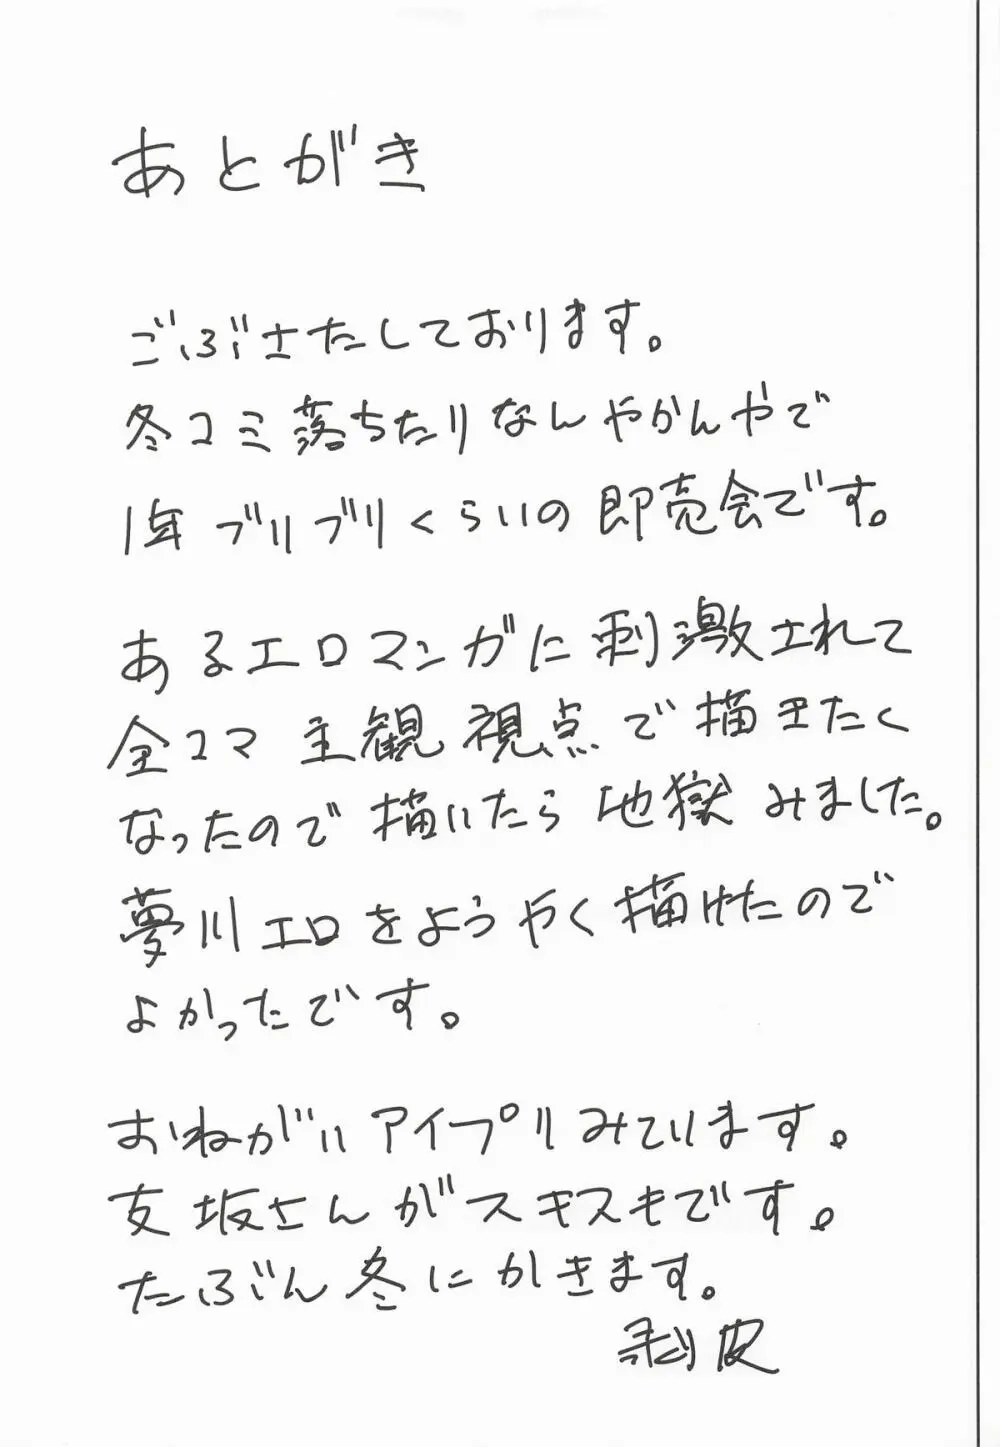 あとがき
ごぶさたしております。
冬コミ落ちたりなんやかんやで
1年ブリブリくらいの即売会です。
あるエロマンガに刺激されて
全コマ主観視点で描きたく
なったので描いたら地獄みました。
夢川エロをようやく描けたので
よかったです。
おねがいアイプリみています。
友坂さんがスキスキです。
たぶん冬にかきます。
剥皮